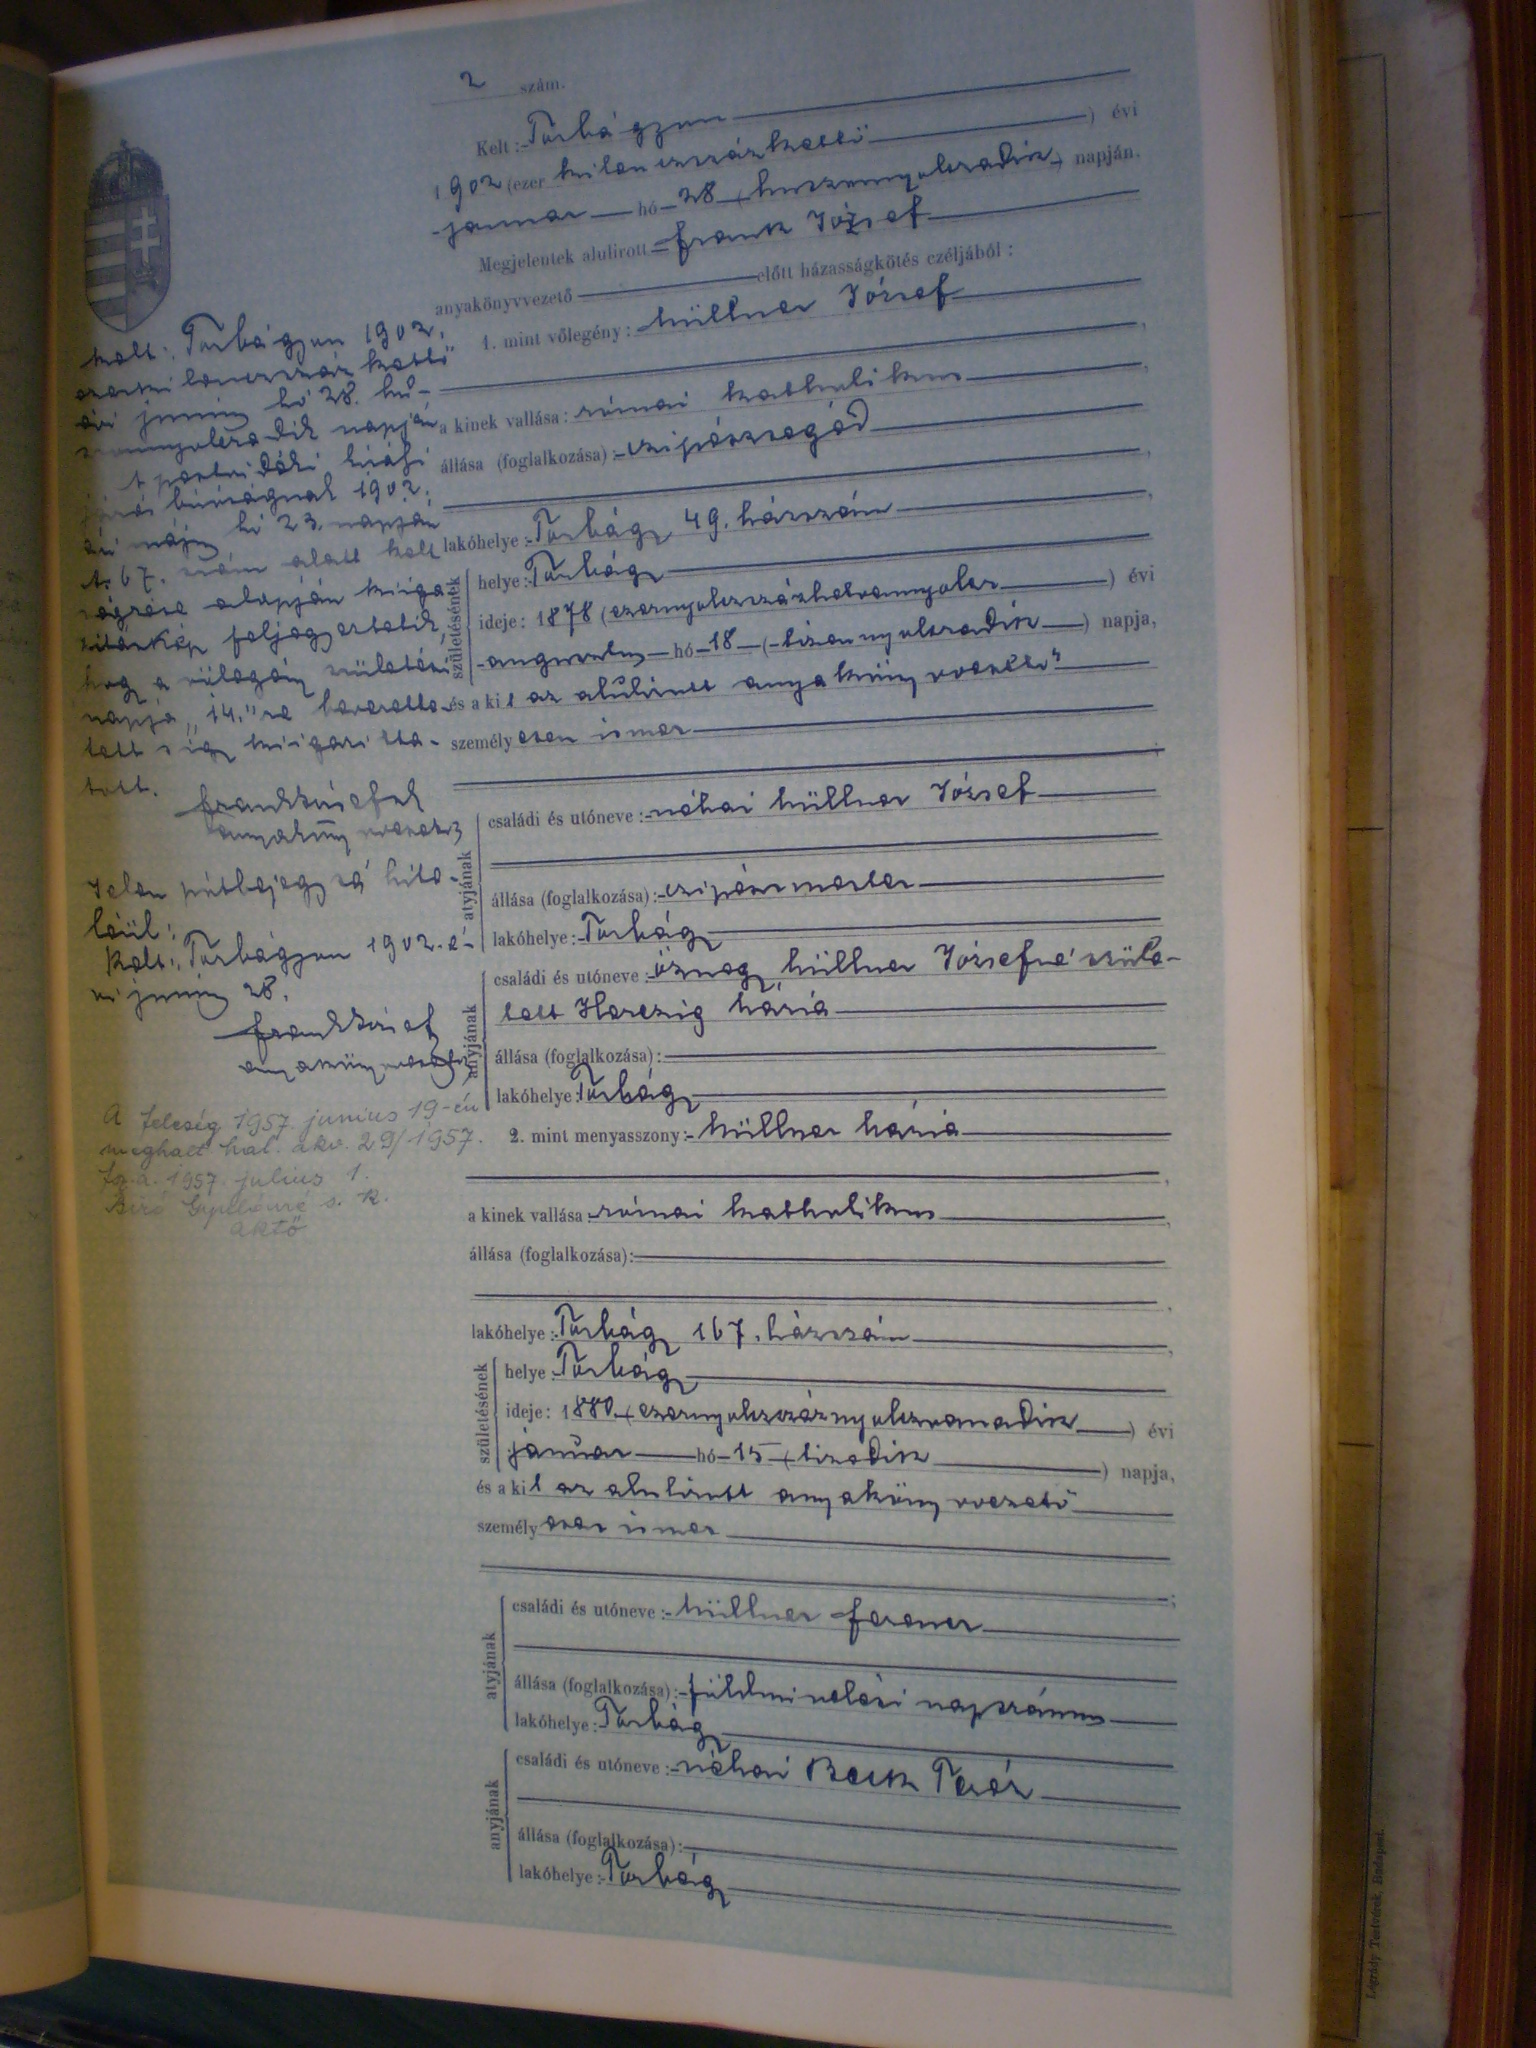 2 szám.
Kelt: Torbágyon
1902 (ezer kilenczszázkettő) évi
január hó 28 (huszonnyolczadik) napján.
Megjelentek alulirott Frank József
anyakönyvvezető előtt házasságkötés czéljából:
1. mint vőlegény: Müllner József
a kinek vallása: római katholikus
állása (foglalkozása): czipészsegéd
lakóhelye: Torbágy 49. házszám
születésének
helye: Torbágy
ideje: 1878 (ezernyolczszázhetvennyolcz) évi
augusztus hó 18 (tizennyolczadik) napja,
és a kit az alulirott anyakönyvvezető
személyesen ismer
atyjának
családi és utóneve: néhai Müllner József
állása (foglalkozása): czipészmester
lakóhelye: Torbágy
anyjának
családi és utóneve: özvegy Müllner Józsefné szüle-
tett Herczig Mária
állása (foglalkozása):
lakóhelye: Torbágy
2. mint menyasszony: Müllner Mária
a kinek vallása: római katholikus
állása (foglalkozása):
lakóhelye: Torbágy 167. házszám
születésének
helye: Torbágy
ideje: 1880 (ezernyolczszáznyolczvanadik) évi
január hó 15 (tizedik) napja,
és a kit az alulirott anyakönyvvezető
személyesen ismer
atyjának
családi és utóneve: Müllner Ferencz
állása (foglalkozása): földmivelési napszámos
lakóhelye: Torbágy
anyjának
családi és utóneve: néhai Beck Teréz
állása (foglalkozása):
lakóhelye: Torbágy
Kelt: Torbágyon 1902.
ezerkilenczszázkettő
évi június hó 28. hu-
szonnyolczadik napján
A királyi
járásbiróságnak 1902.
évi május hó 23. napján
67. szám alatt kelt
végzése alapján kiiga-
zitáskép feljegyeztetik,
hogy a vőlegény születési
napja "14."re
tett s igy kiigazitta-
tott.
Frank József
anyakönyvvezető
Jelen pótbejegyzés hite-
léül:
Kelt: Torbágyon 1902. é-
vi június 28.
Frank József
anyakönyvvezető
A feleség 1957. junius 19-én
meghalt hal. akv. 29/1957.
1957. julius 1.
Biró Gyuláné s. k.
Légrády Testvérek, Budapest.